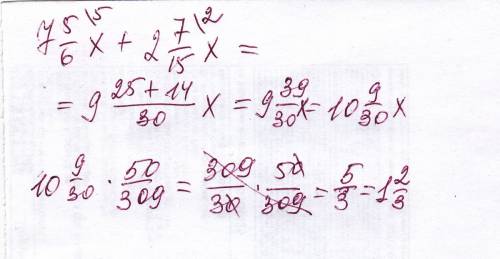 7 5/6 \5 x + 2 7/15 \2 x =
= 9 25+14/30 x = 9 39/30 x = 10 9/30 x
10 9/30 · 50/309 = 309/30 · 50/309 = 5/3 = 1 2/3